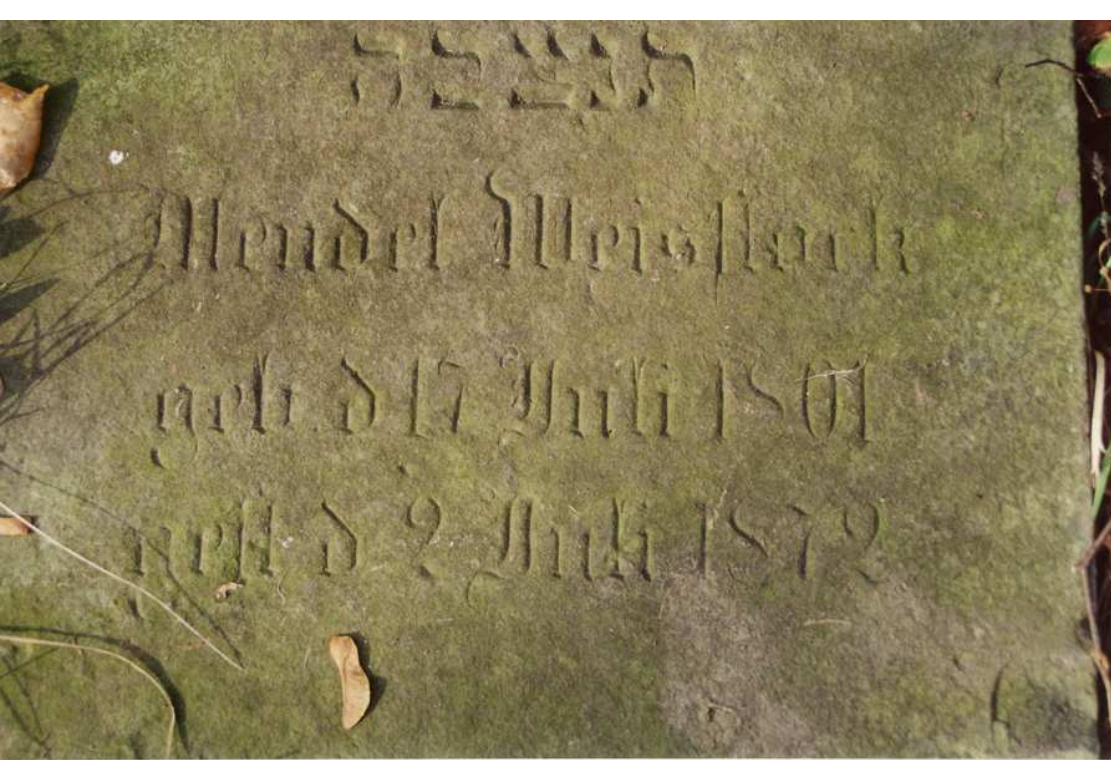 תנצבה
Mendel Weisstock
geb. d 17 Juli 1801
gest. d 2 Juli 1872